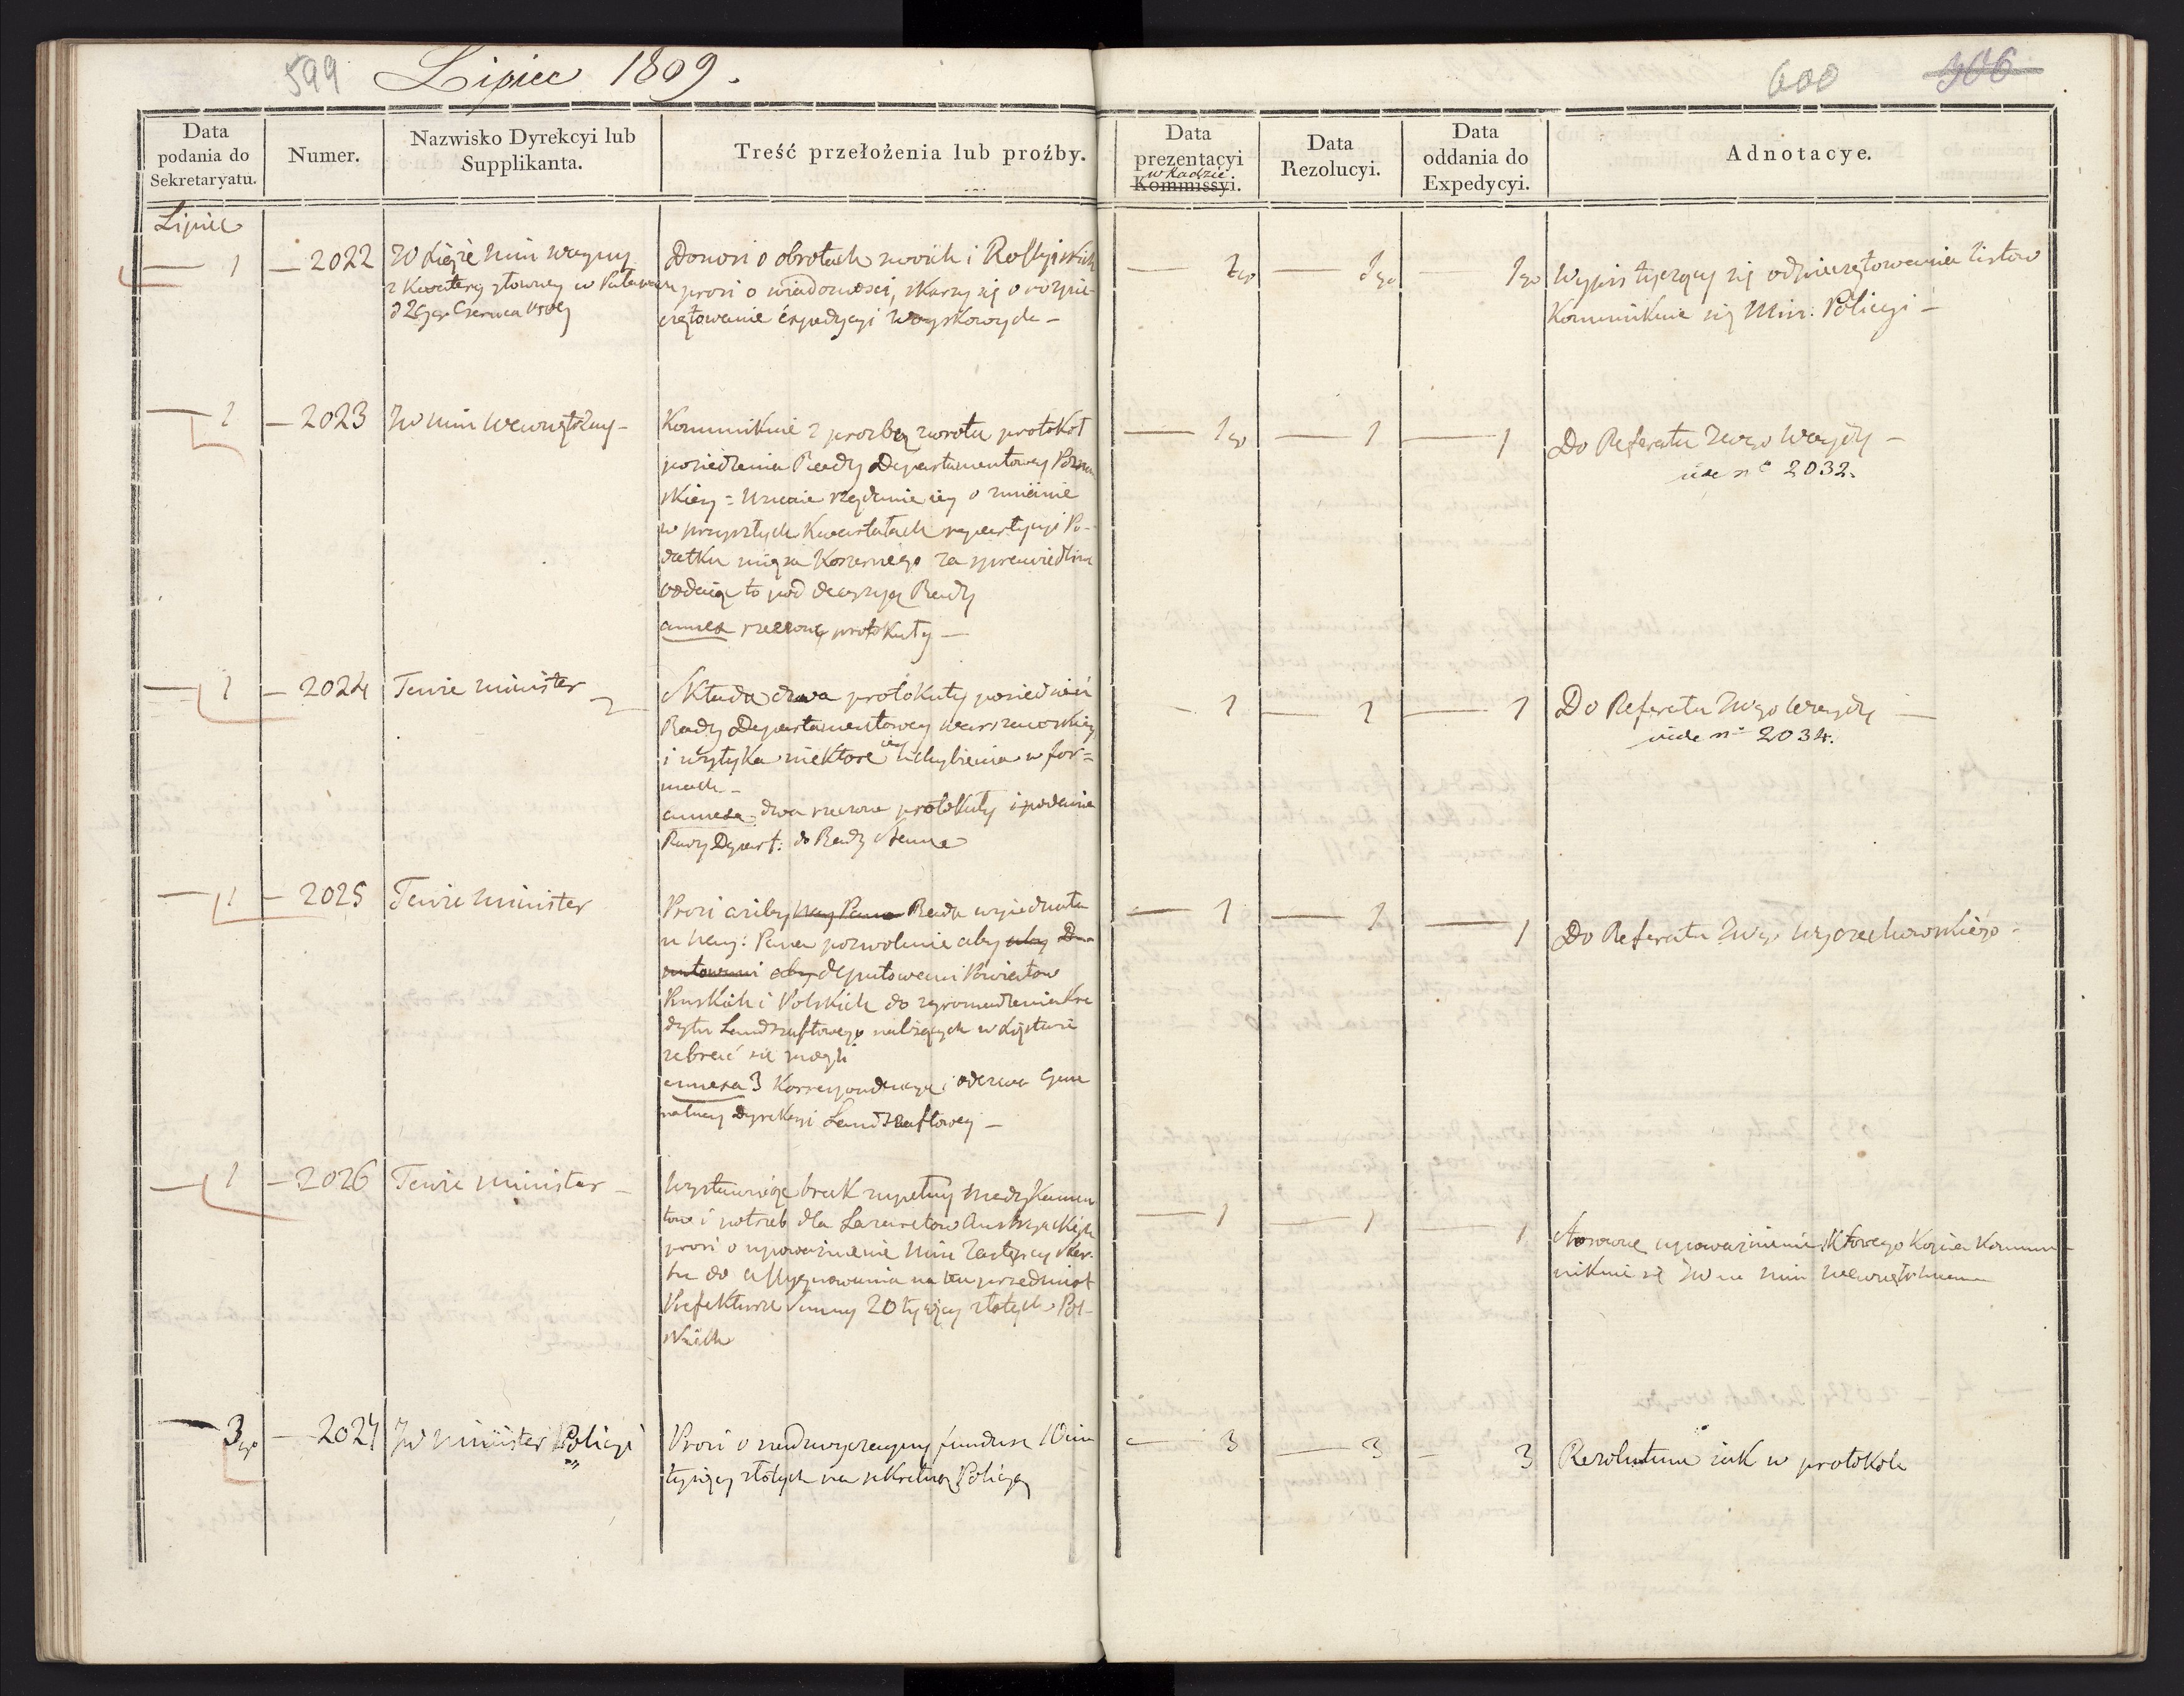 599 Lipiec 1809.
600 306
Data podania do Sekretaryatu.
Numer.
Nazwisko Dyrekcyi lub Supplikanta.
Treść przełożenia lub proźby.
Data prezentacyi w Radzie Kommissyi.
Data Rezolucyi.
Data oddania do Expedycyi.
Adnotacye.
Lipiec
1 — 2022
Xiąże Min Woyny
z Kwatery głowney w Puławach
d 29go Czerwca 1809
Donosi o obrotach swoich i Rossyiskich
prosi o wiadomości, skarży się o rozpie-
czętowanie expedycyi Woyskowych —
1go — 1go — 1go
Wypis tyczący się odpieczętowania listow
Kommunikuie się Min: Policyi —
1 — 2023
JW Min Wewnętrzny —
Kommunikuie z prozbą zwrotu protokoł
posiedzenia Rady Departamentowey Poznań
skiey = Uznaie żądanie iey o zmianie
w przyszłych Kwartałach repartycyi Po-
datku mięsa Koszernego za sprawiedliwe
oddaiąc to pod decyzyą Rady
annex rzeczony protokuły —
1go — 1 — 1
Do Referatu JWgo Węgdy —
vide no 2032.
1 — 2024
Tenże Minister
Składa dwa protokuły posiedzeń
Rady Departamentowey Warszawskiey
i wytyka niektore iey uchybienia w for=
mach —
annexa dwa rzeczone protokuły i podanie
Rady Depart: do Rady Stanu
1 — 1 — 1
Do Referatu JWgo Węgdy —
vide no 2034.
1 — 2025
Tenże Minister
Prosi ażeby Nay Pana Rada wyiednała
u Nay: Pana pozwolenie aby aby De
putowani aby deputowani Powiatow
Pruskich i Polskich do zgromadzenia Kre
dytu Landszaftowego należących w
zebrać się mogli
annexa 3 Korrespondencye i odezwa Gene
ralney Dyrekcyi Landszaftowey —
1 — 1 — 1
Do Referatu JWgo Wyczechowskiego —
1 — 2026
Tenże Minister —
Wystawiaiąc brak zupełny Medykamen
tow i potrzeb dla Lazaretow Austryackich
prosi o upoważnienie Min Zastępcy Skar-
bu do assygnowania na ten przedmiot
Prefekturze Summy 20 tysięcy złotych Pol-
skich
1 — 1 — 1
Stosowne upoważnienie którego Kopia Kommu-
nikuie się JWmu Min Wewnętrznemu
3go — 2027
JW Minister Policyi
Prosi o nadzwyczayny fundusz 10ciu
tysięcy złotych na sekretną Policyą
3 — 3 — 3
Rezolutum iak w protokole